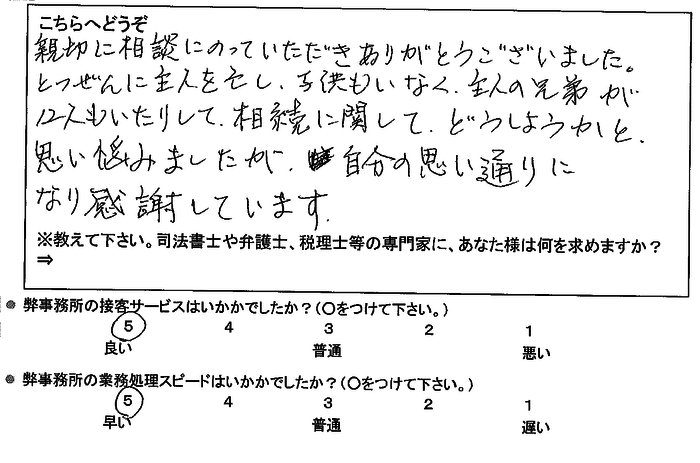 こちらへどうぞ
親切に相談にのっていただきありがとうございました。
とつぜんに主人を亡し、子供もいなく、主人の兄弟が
12人もいたりして、相続に関して、どうしようかと、
思い悩みましたが、自分の思い通りに
なり感謝しています。
※教えて下さい。司法書士や弁護士、税理士等の専門家に、あなた様は何を求めますか？
⇒
● 弊事務所の接客サービスはいかかでしたか？（〇をつけて下さい。）
5 4 3 2 1
良い 普通 悪い
● 弊事務所の業務処理スピードはいかかでしたか？（〇をつけて下さい。）
5 4 3 2 1
早い 普通 遅い